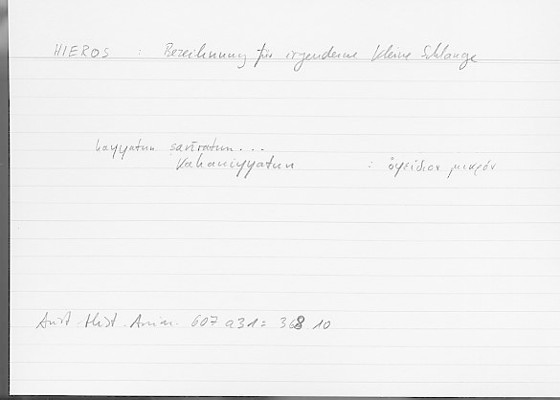 HIEROS : Bezeichnung für irgendeine kleine Schlange
ḥayyatun saġīratun...
kahaniyyatun : ὀφείδιον μικρόν
Arist. Hist. Anim. 607 a31 = 368 10